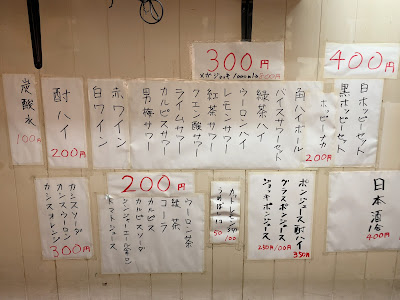 400円
白ホッピーセット
黒ホッピーセット
ホッピーナカ
200円
300円
メガジョッキ1000ml
角ハイボール
バイスサワーセット
緑茶ハイ
ウーロンハイ
レモンサワー
紅茶サワー
クエン酸サワー
ライムサワー
カルピスサワー
男梅サワー
赤ワイン
白ワイン
酎ハイ
200円
炭酸水
100円
日本酒1合
400円
ポンジュース酎ハイ
350円
グラスポンジュース
ジョッキポンジュース
250円/100円
カットレモン
50
100
200円
ウーロン茶
緑茶
コーラ
カルピス
カルピスソーダ
ジンジャーエール
トマトジュース
カシスソーダ
カシスウーロン
カシスオレンジ
300円